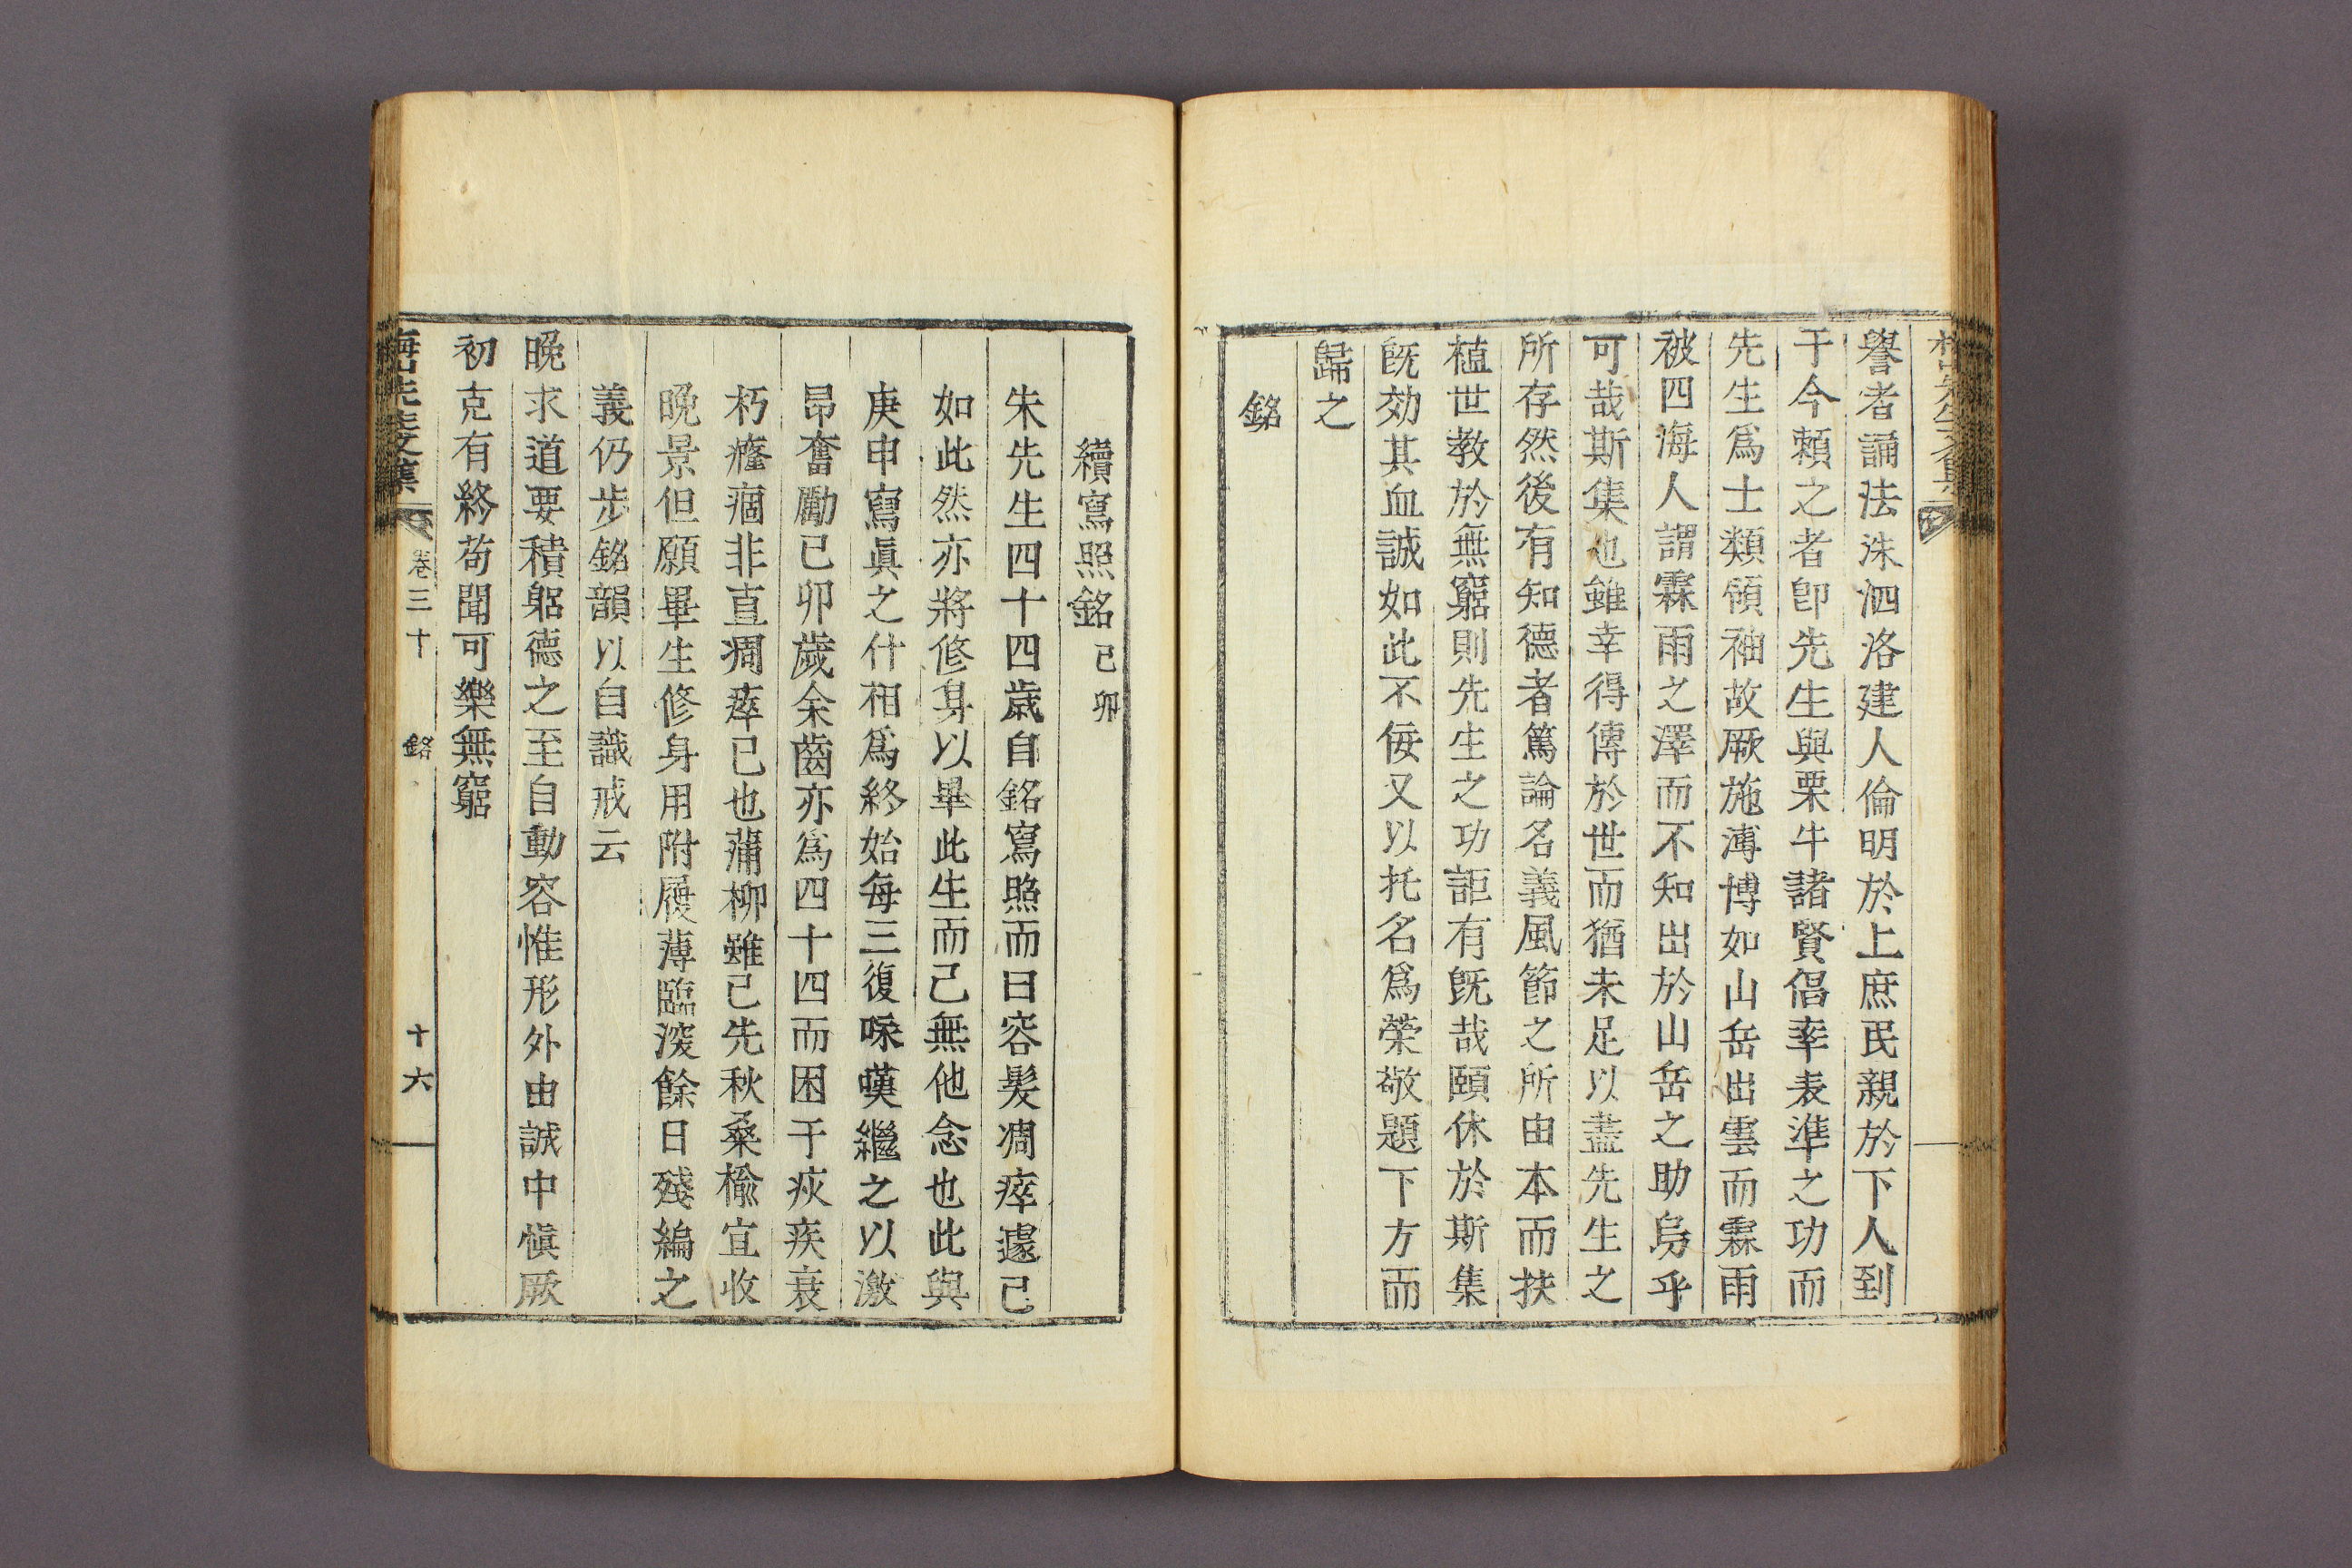 譽者誦法洙泗洛建人倫明於上庶民親於下人到
于今賴之者卽先生與栗牛諸賢倡率表準之功而
先生爲士類領袖故厥施溥博如山岳出雲而霖雨
被四海人謂霖雨之澤而不知出於山岳之助烏乎
可哉斯集也雖幸得傳於世而猶未足以盡先生之
所存然後有知德者篤論名義風節之所由本而扶
植世敎於無窮則先生之功詎有旣哉頤休於斯集
旣効其血誠如此不佞又以托名爲榮敬題下方而
歸之
銘
續寫照銘 己卯
朱先生四十四歲自銘寫照而曰容髮凋瘁遽已
如此然亦將修身以畢此生而已無他念也此與
庚申寫眞之什相爲終始每三復咏嘆繼之以激
昂奮勵己卯歲余齒亦爲四十四而困于疢疾衰
朽癃痼非直凋瘁已也蒲柳雖已先秋桑楡宜收
晩景但願畢生修身用附履薄臨深餘日殘編之
義仍步銘韻以自識戒云
晩求道要積躬德之至自動容惟形外由誠中愼厥
初克有終苟聞可樂無窮
梅山先生文集 卷三十 銘 十六